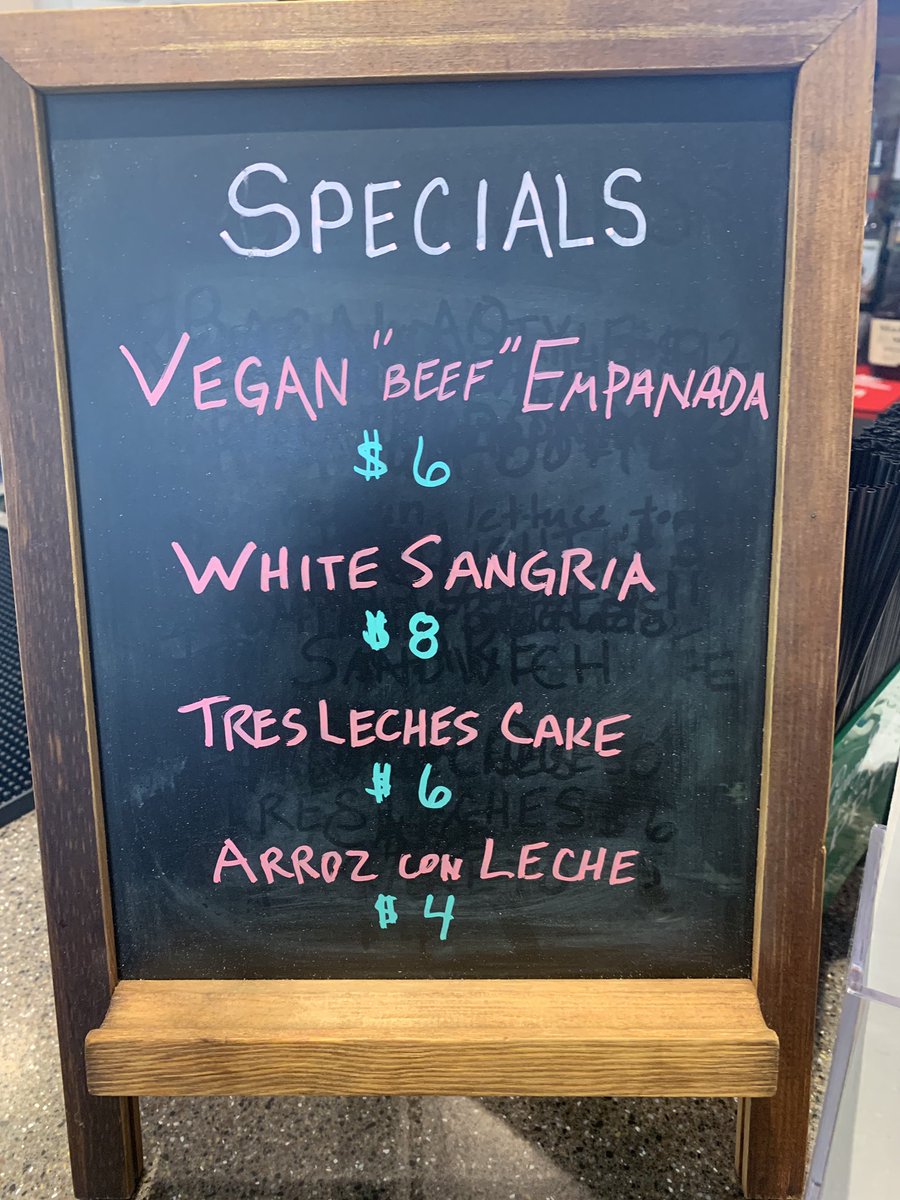 SPECIALS
VEGAN "BEEF" EMPANADA
$6
WHITE SANGRIA
$8
TRES LECHES CAKE
$6
ARROZ CON LECHE
$4
lettuce
SANDWICH
TRES LECHES